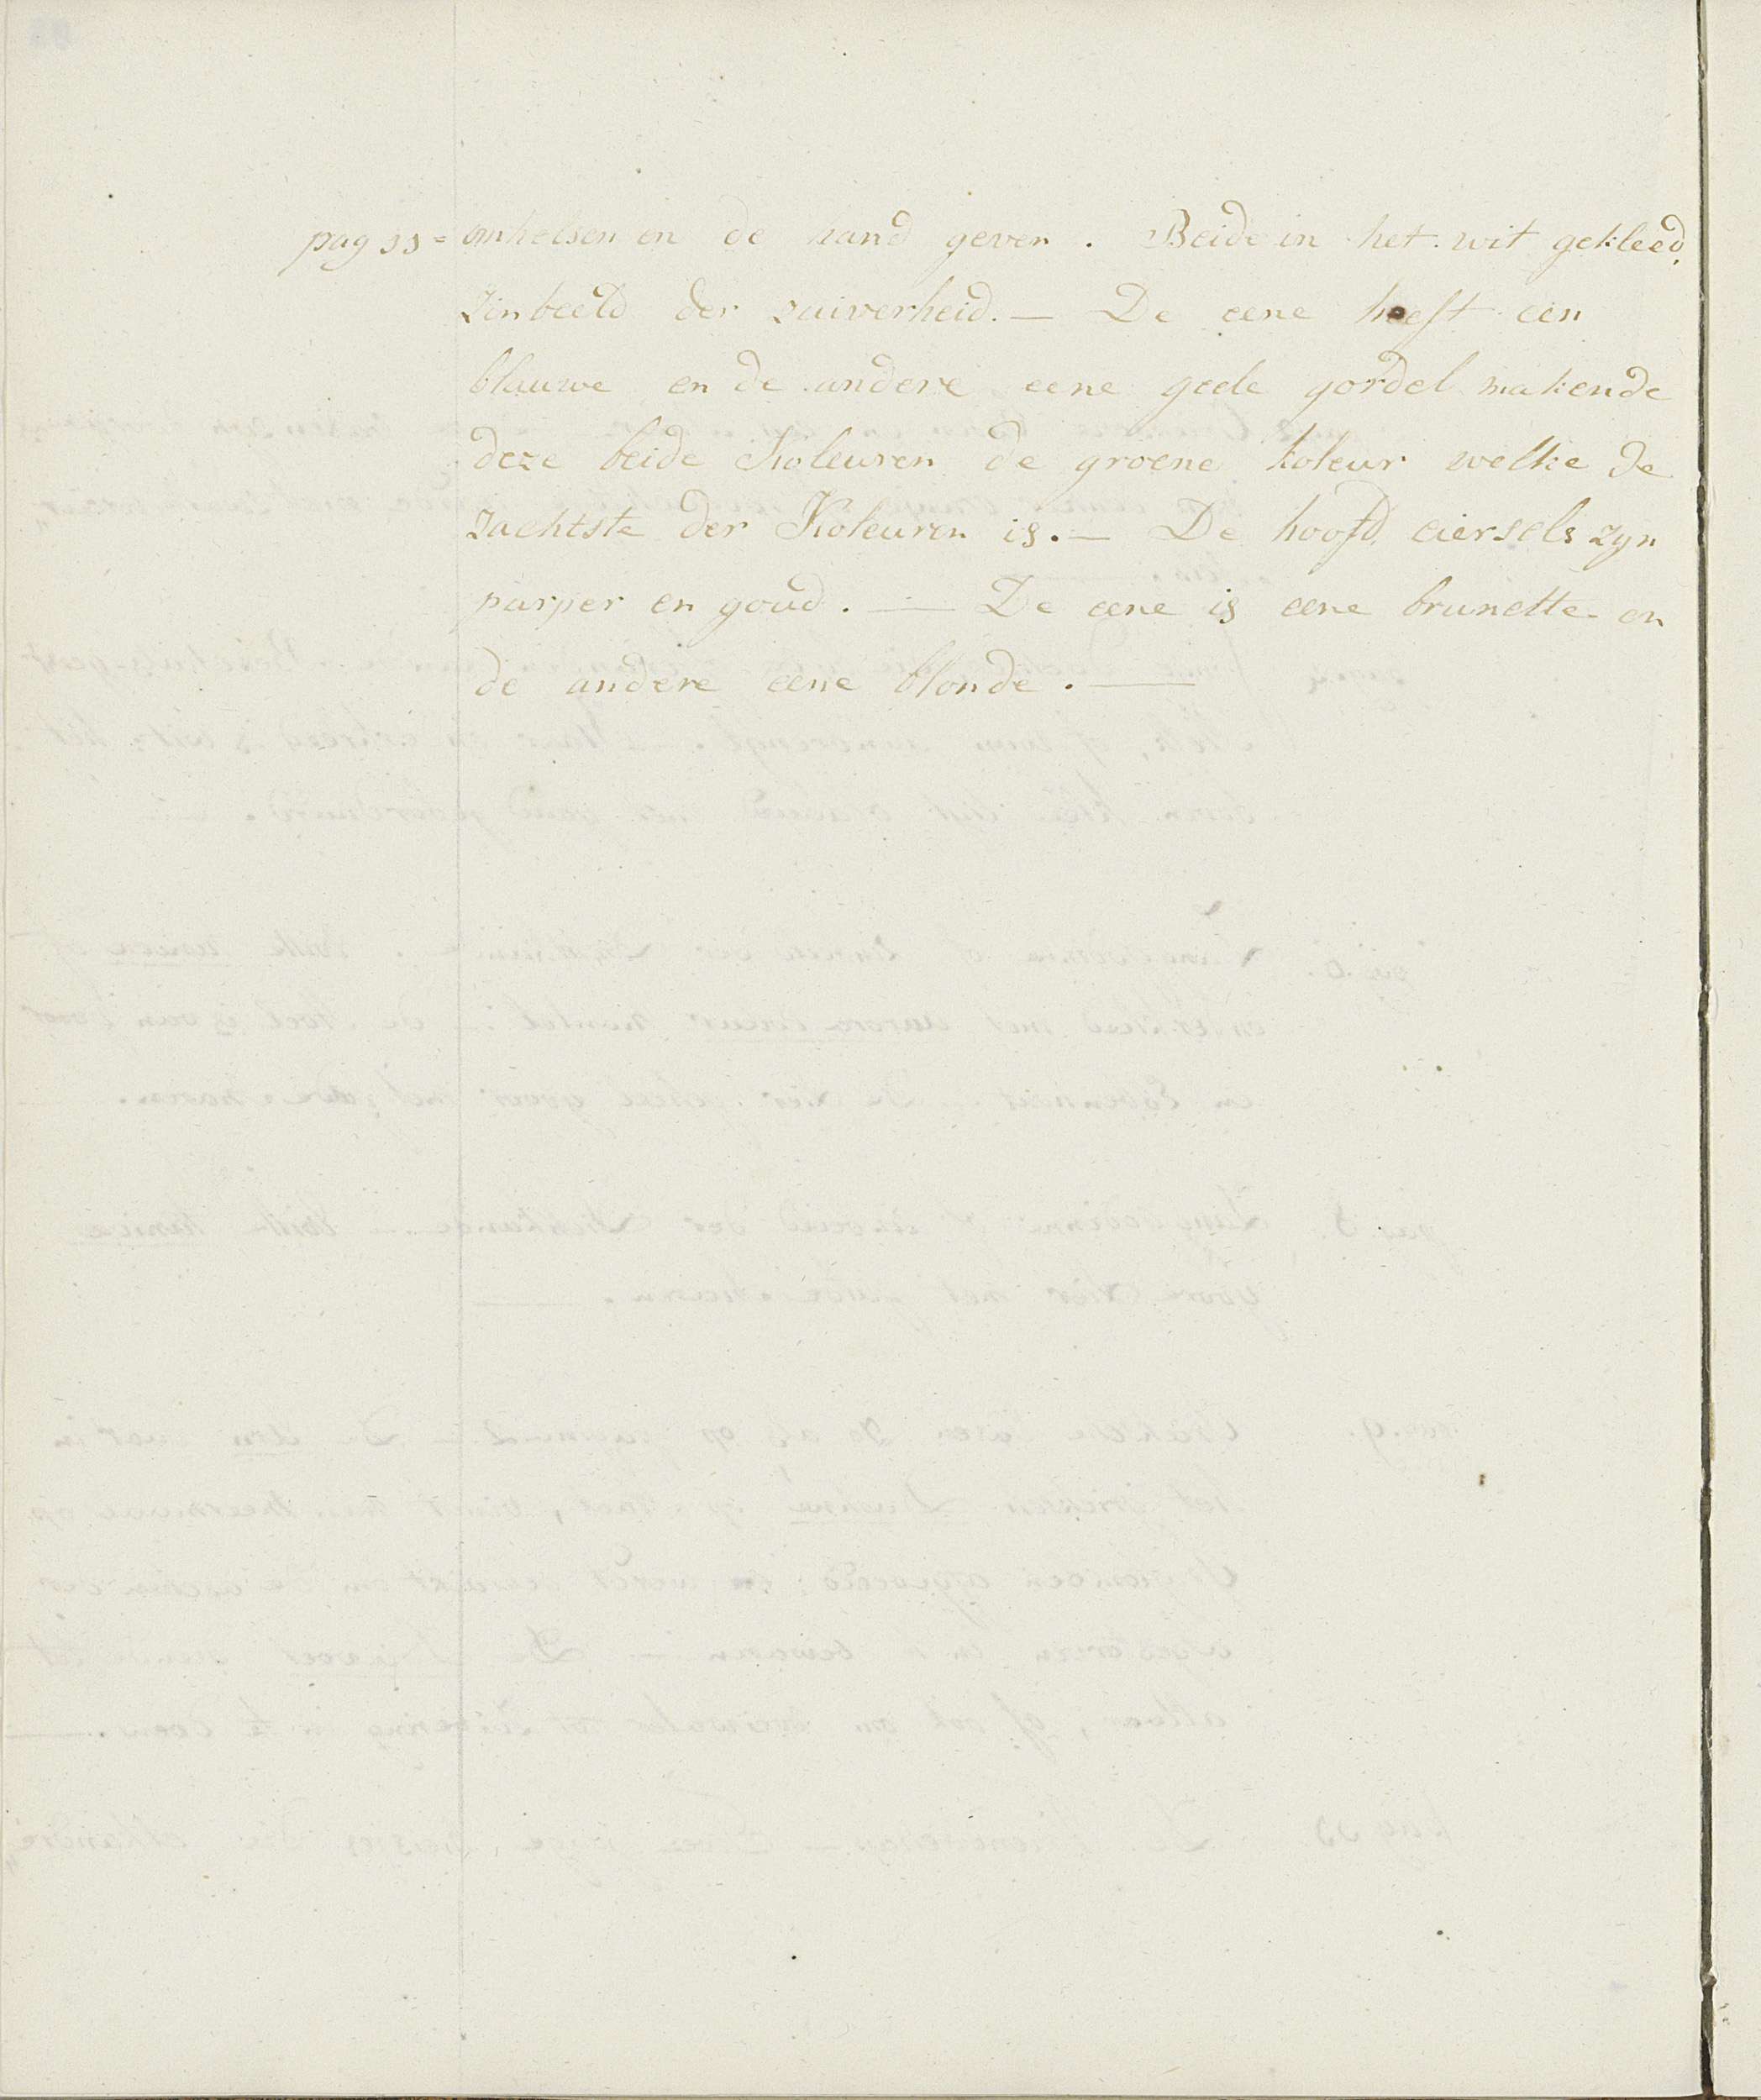 pag 33 = omhelsen en de hand geven. Beide in het wit gekleed,
zinbeeld der zuiverheid. — De eene heeft een
blauwe en de andere eene geele gordel makende
deze beide Koleuren de groene koleur welke de
zachtste der Koleuren is. — De hoofd ciersels zyn
purper en goud. — De eene is eene brunette en
de andere eene blonde. —